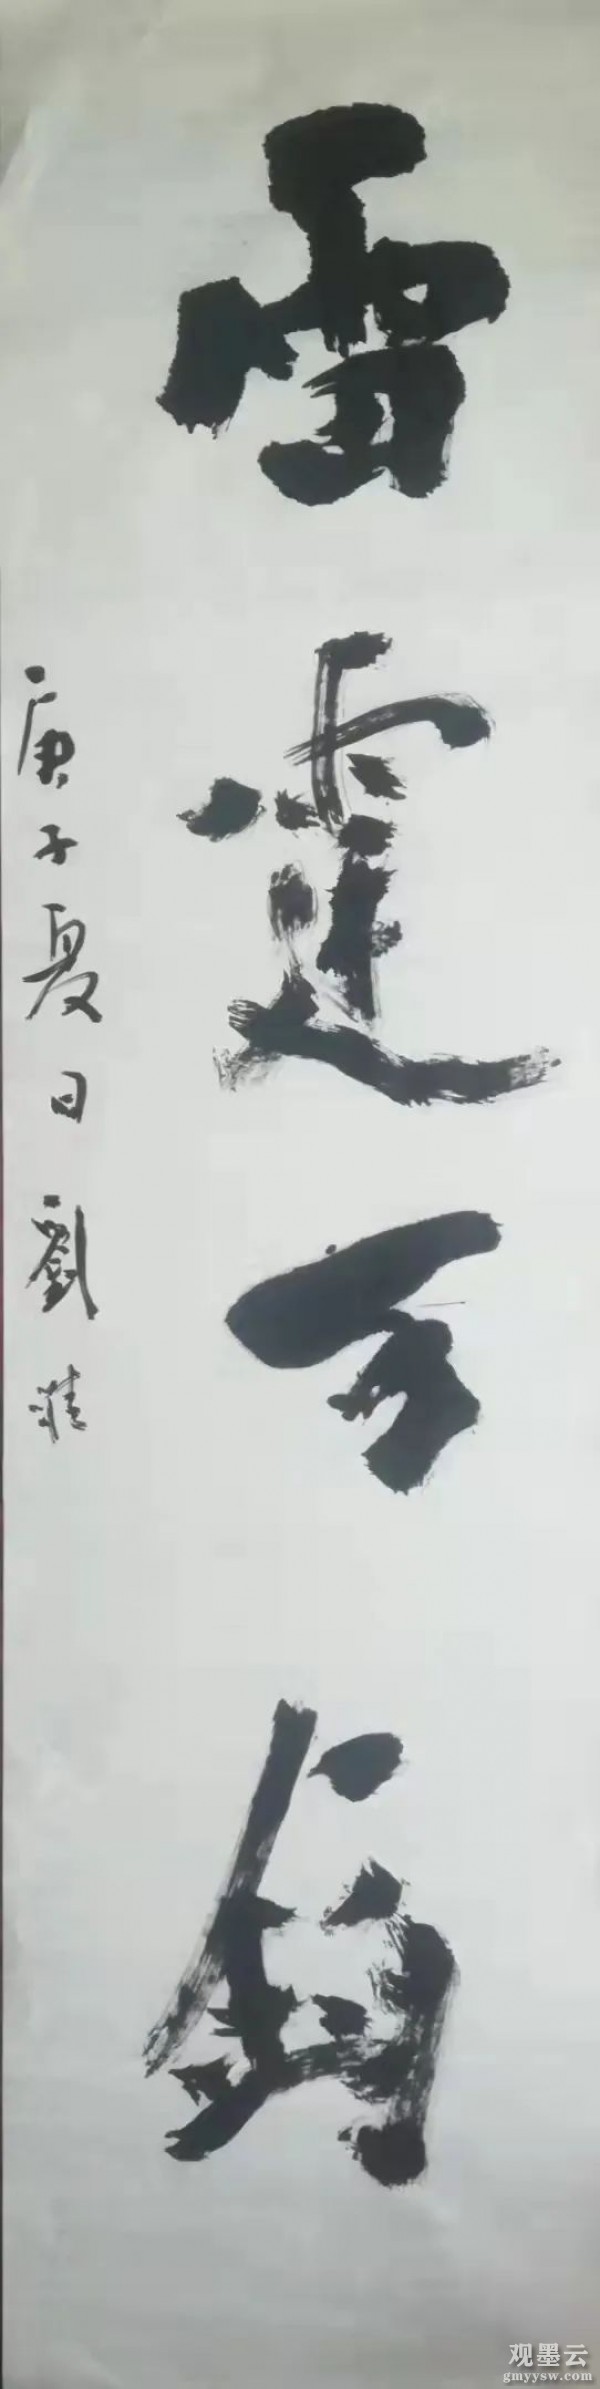 雷霆万钧
庚子夏日劉
观墨云
gmyysw.com